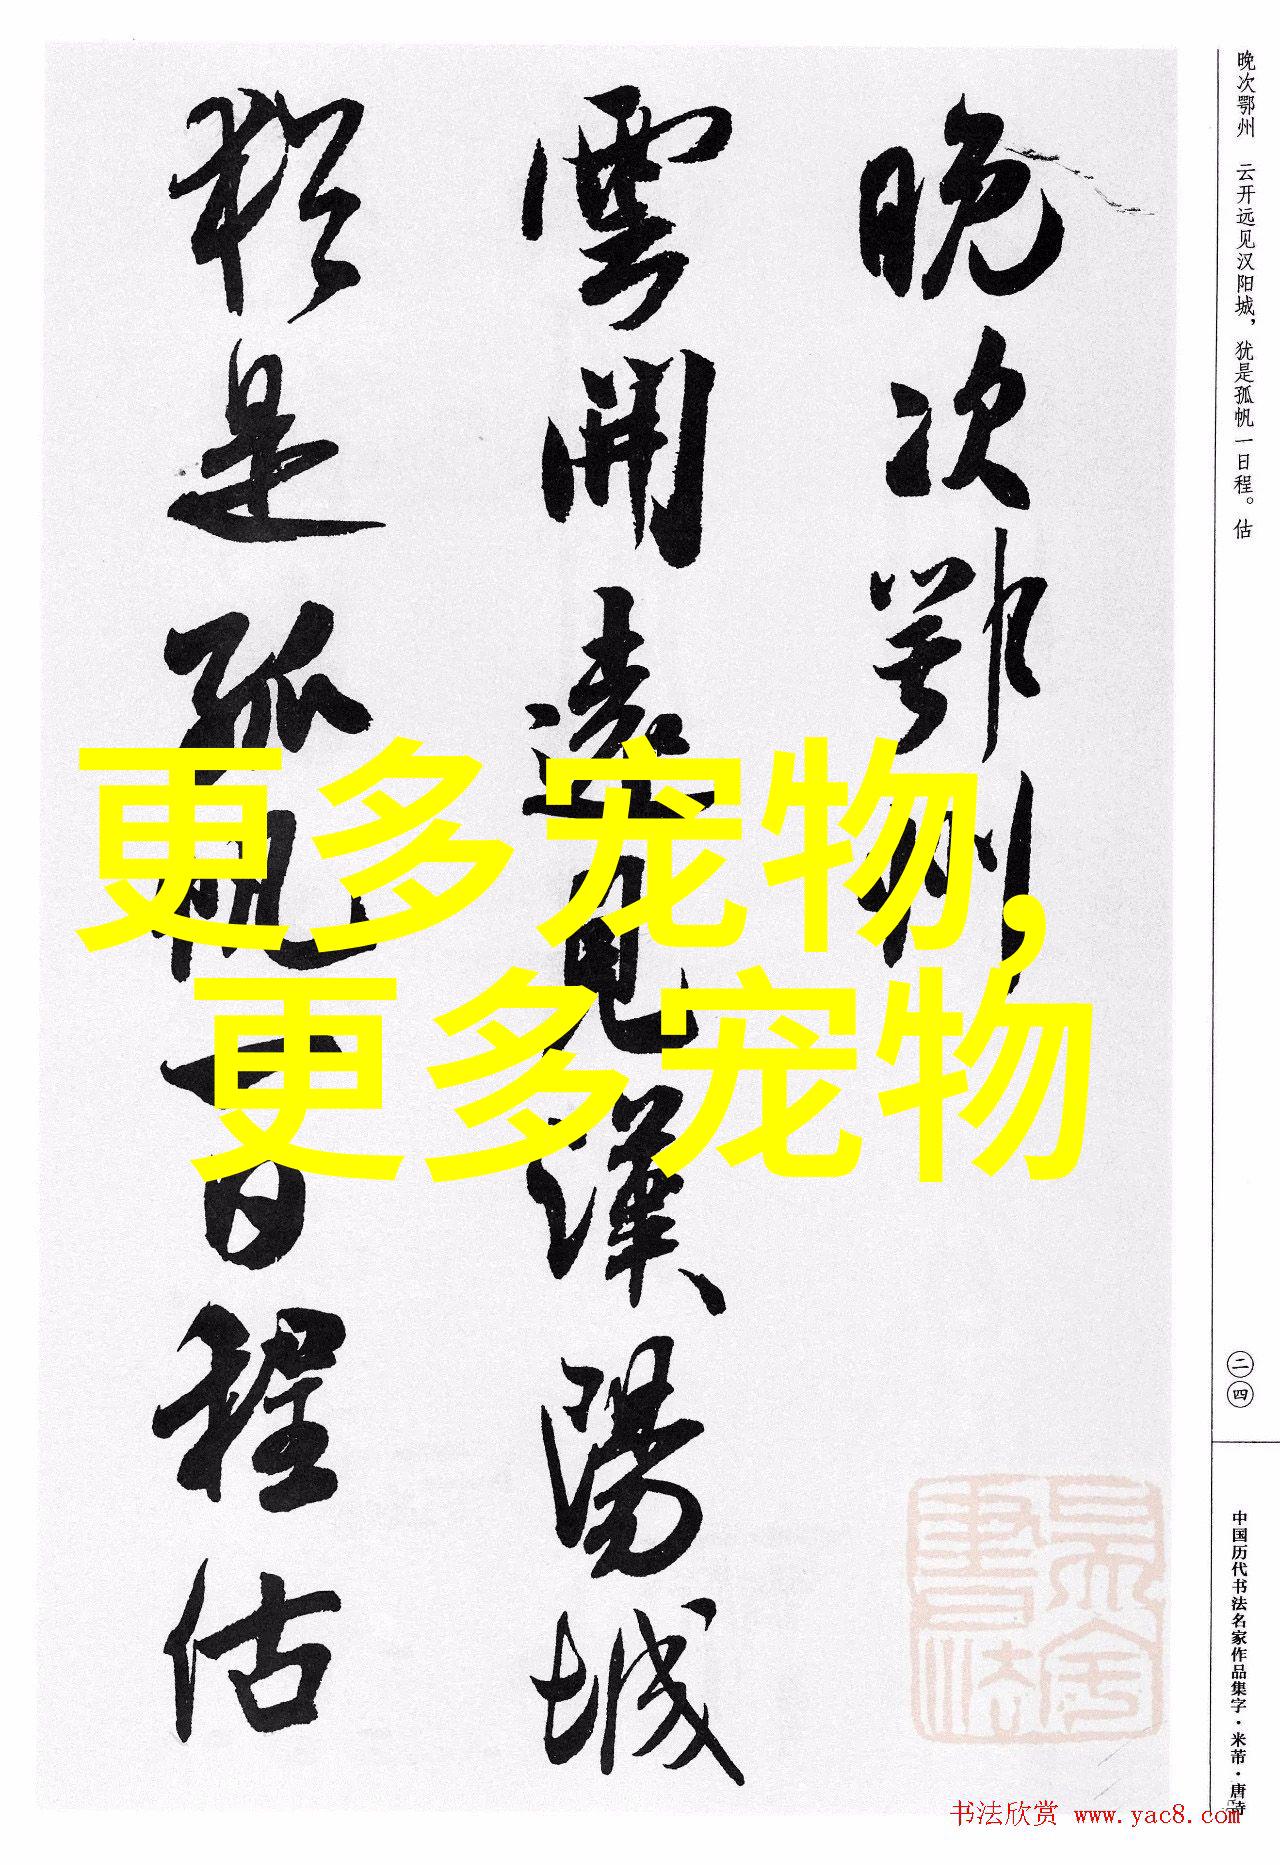 晚次鄂州
雲開遠見漢陽城
猶是孤帆一日程估
晚次鄂州 云开远见汉阳城，犹是孤帆一日程。估
二四
中国历代书法名家作品集字·米芾·唐诗
更多宠物,
更多宠物
书法欣赏 www.yac8.com